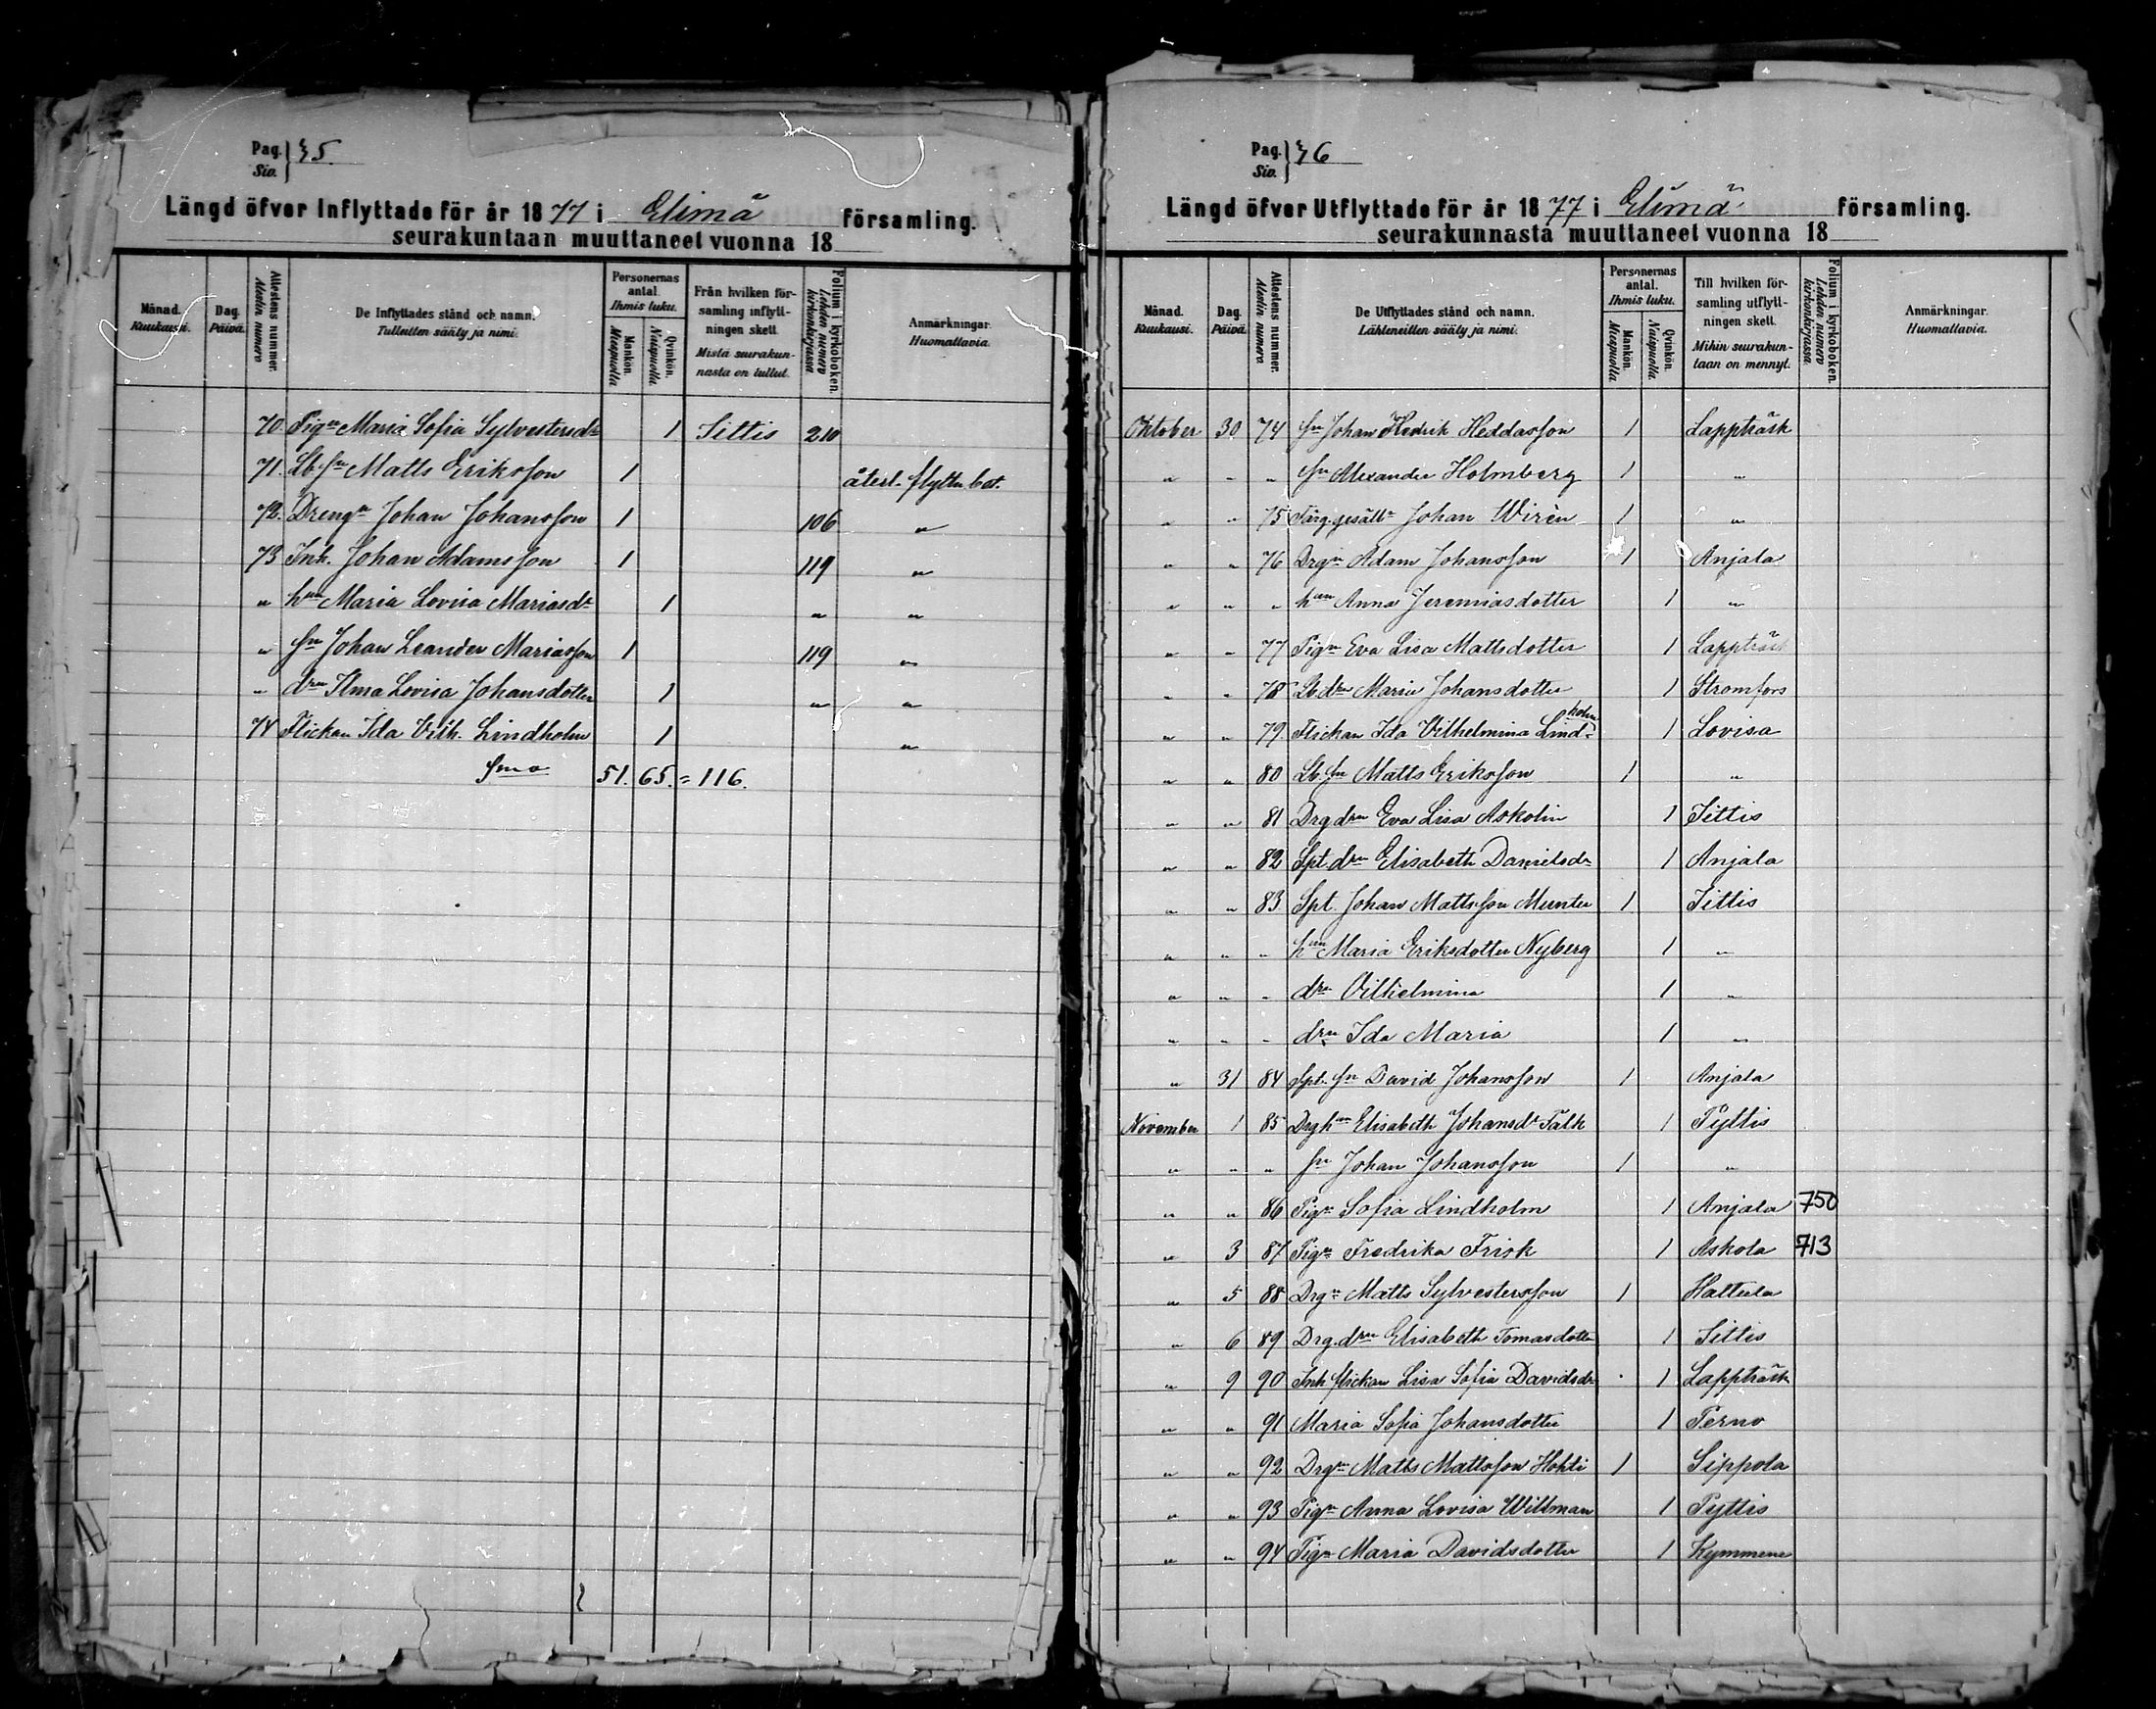 Pag. Siv. } 35.
Längd öfver Inflyttade för år 1877 i Elimä församling.
seurakuntaan muuttaneet vuonna 18
Månad. Kuukausi. | Dag. Päivä. | Attestens nummer. Alestin numero | De Inflyttades stånd och namn. Tulleitten sääty ja nimi. | Personernas antal. Ihmis luku. Mankön. Miespuolla | Qvinkön. Naispuolla | Från hvilken församling inflyttningen skett. Mistä seurakunnasta on tullut. | Folium i kyrkoboken. Lehden numero kirkonkirjassa | Anmärkningar. Huomattavia.
70. Pign Maria Sofia Sylvestersdr 1 Sittis 210
71. Lb. sn Matts Eriksson 1 återl. flyttn. bet.
72. Drengn Johan Johansson 1 106 "
73 Inh. Johan Adamsson 1 119 "
" hun Maria Lovisa Mariasdr 1 " "
" sn Johan Leander Mariasson 1 119 "
" drn Ilma Lovisa Johansdotter 1 " "
74 Flickan Ida Vilh. Lindholm 1 "
Sma 51. 65. = 116.
Pag. Siv. } 36
Längd öfver Utflyttade för år 1877 i Elimä församling.
seurakunnasta muuttaneet vuonna 18
Månad. Kuukausi. | Dag. Päivä. | Attestens nummer. Alestin numero | De Utflyttades stånd och namn. Lähteneitten sääty ja nimi. | Personernas antal. Ihmis luku. Mankön. Miespuolla | Qvinkön. Naispuolla | Till hvilken församling utflyttningen skett. Mihin seurakuntaan on mennyt. | Folium i kyrkoboken. Lehden numero kirkonkirjassa | Anmärkningar. Huomattavia.
Oktober 30 74 sn Johan Fredrik Heddasson 1 Lappträsk
" " " sn Alexander Holmberg 1 "
" " 75 Färg.gesälln Johan Wirèn 1 "
" " 76 Drgn Adam Johansson 1 Anjala
" " " hun Anna Jeremiasdotter 1 "
" " 77 Pign Eva Lisa Mattsdotter 1 Lappträsk
" " 78 Lb drn Maria Johansdotter 1 Stromfors
" " 79. Flickan Ida Vilhelmina Lindholm 1 Lovisa
" " 80 Lb. sn Matts Eriksson 1 "
" " 81 Drg drn Eva Lisa Askolin 1 Sittis
" " 82 Spt. drn Elisabeth Danielsdr 1 Anjala
" " 83 Spt. Johan Mattsson Munter 1 Sittis
" " " hun Maria Eriksdotter Nyberg 1 "
" " " drn Vilhelmina 1 "
" " " drn Ida Maria 1 "
" 31 84 Spt. sn David Johansson 1 Anjala
November 1 85 Drg hun Elisabeth Johansdr Falk 1 Pyttis
" " " sn Johan Johansson 1 "
" " 86 Pign Sofia Lindholm 1 Anjala 750
" 3 87 Pign Fredrika Frisk 1 Askola 713
" 5 88 Drgn Matts Sylvestersson 1 Hattula
" 6 89 Drg. drn Elisabeth Tomasdotter 1 Sittis
" 9 90 Inh flickan Lisa Sofia Davidsdr 1 Lappträsk
" " 91 Maria Sofia Johansdotter 1 Perno
" " 92 Drgn Matts Mattsson Hohti 1 Sippola
" " 93 Pign Anna Lovisa Willman 1 Pyttis
" " 94 Pign Maria Davidsdotter 1 Kymmene